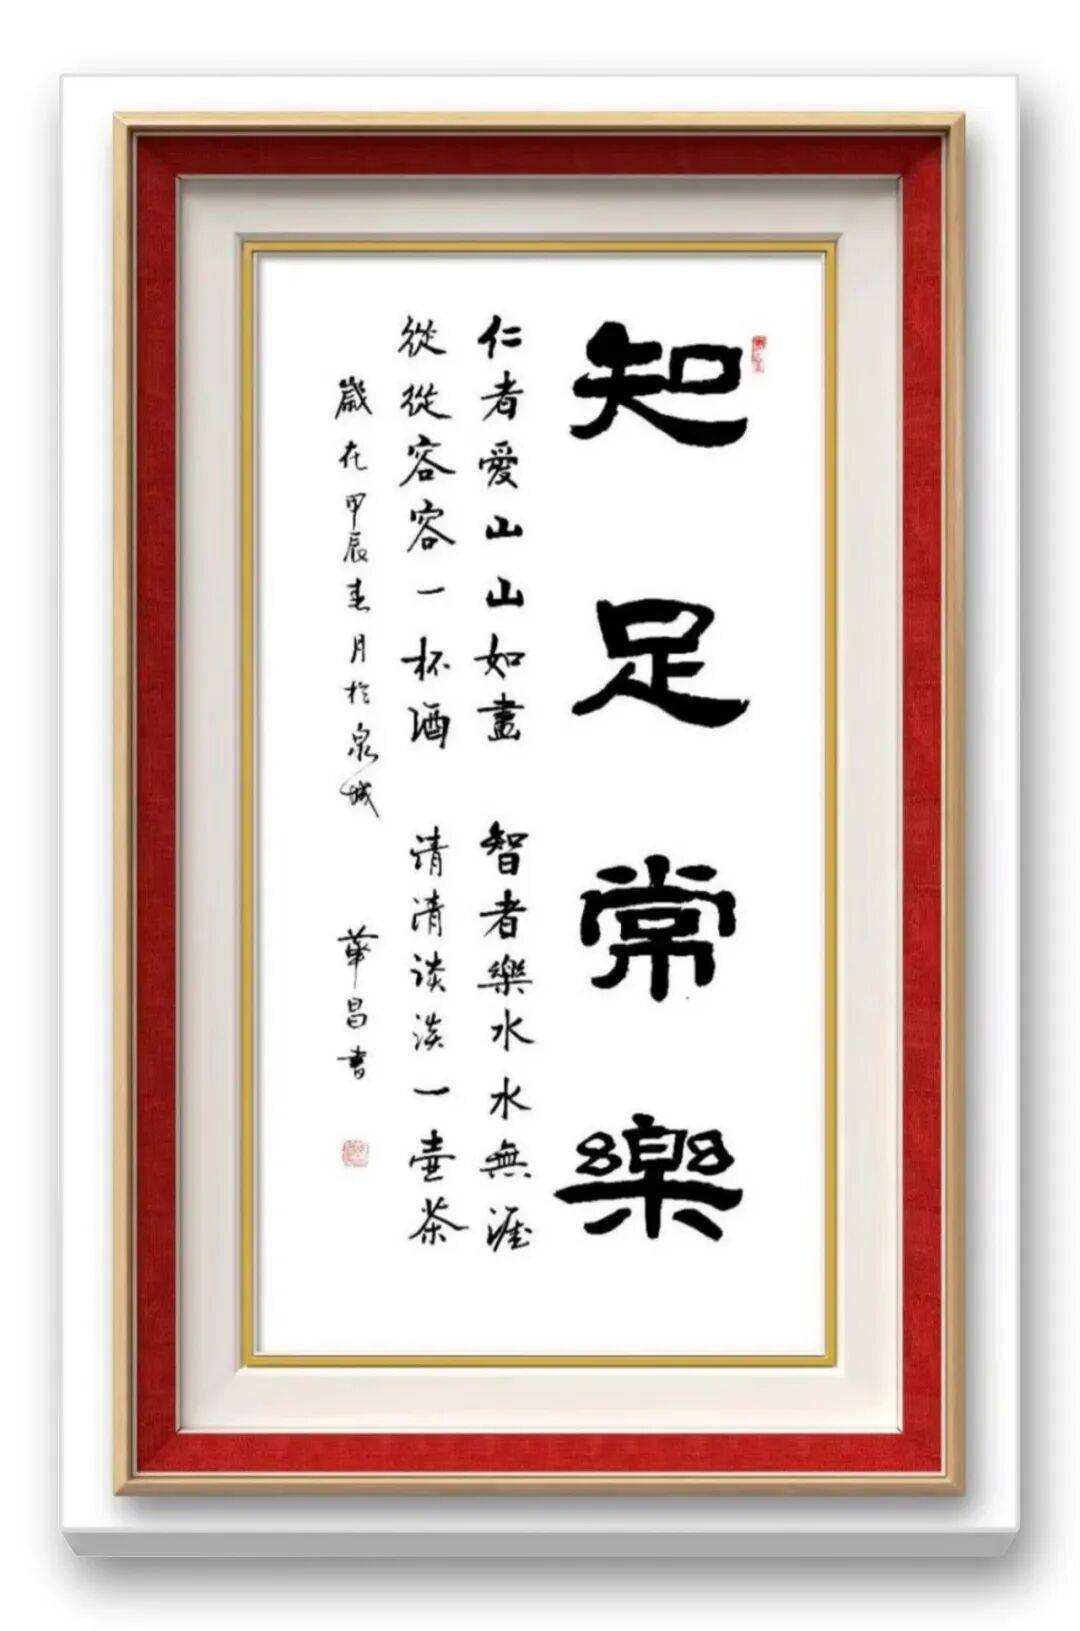 知足常樂
仁者愛山山如畫 智者樂水水無涯
從從容容一杯酒 清清淡淡一壺茶
歲在甲辰春月於泉城 華昌書